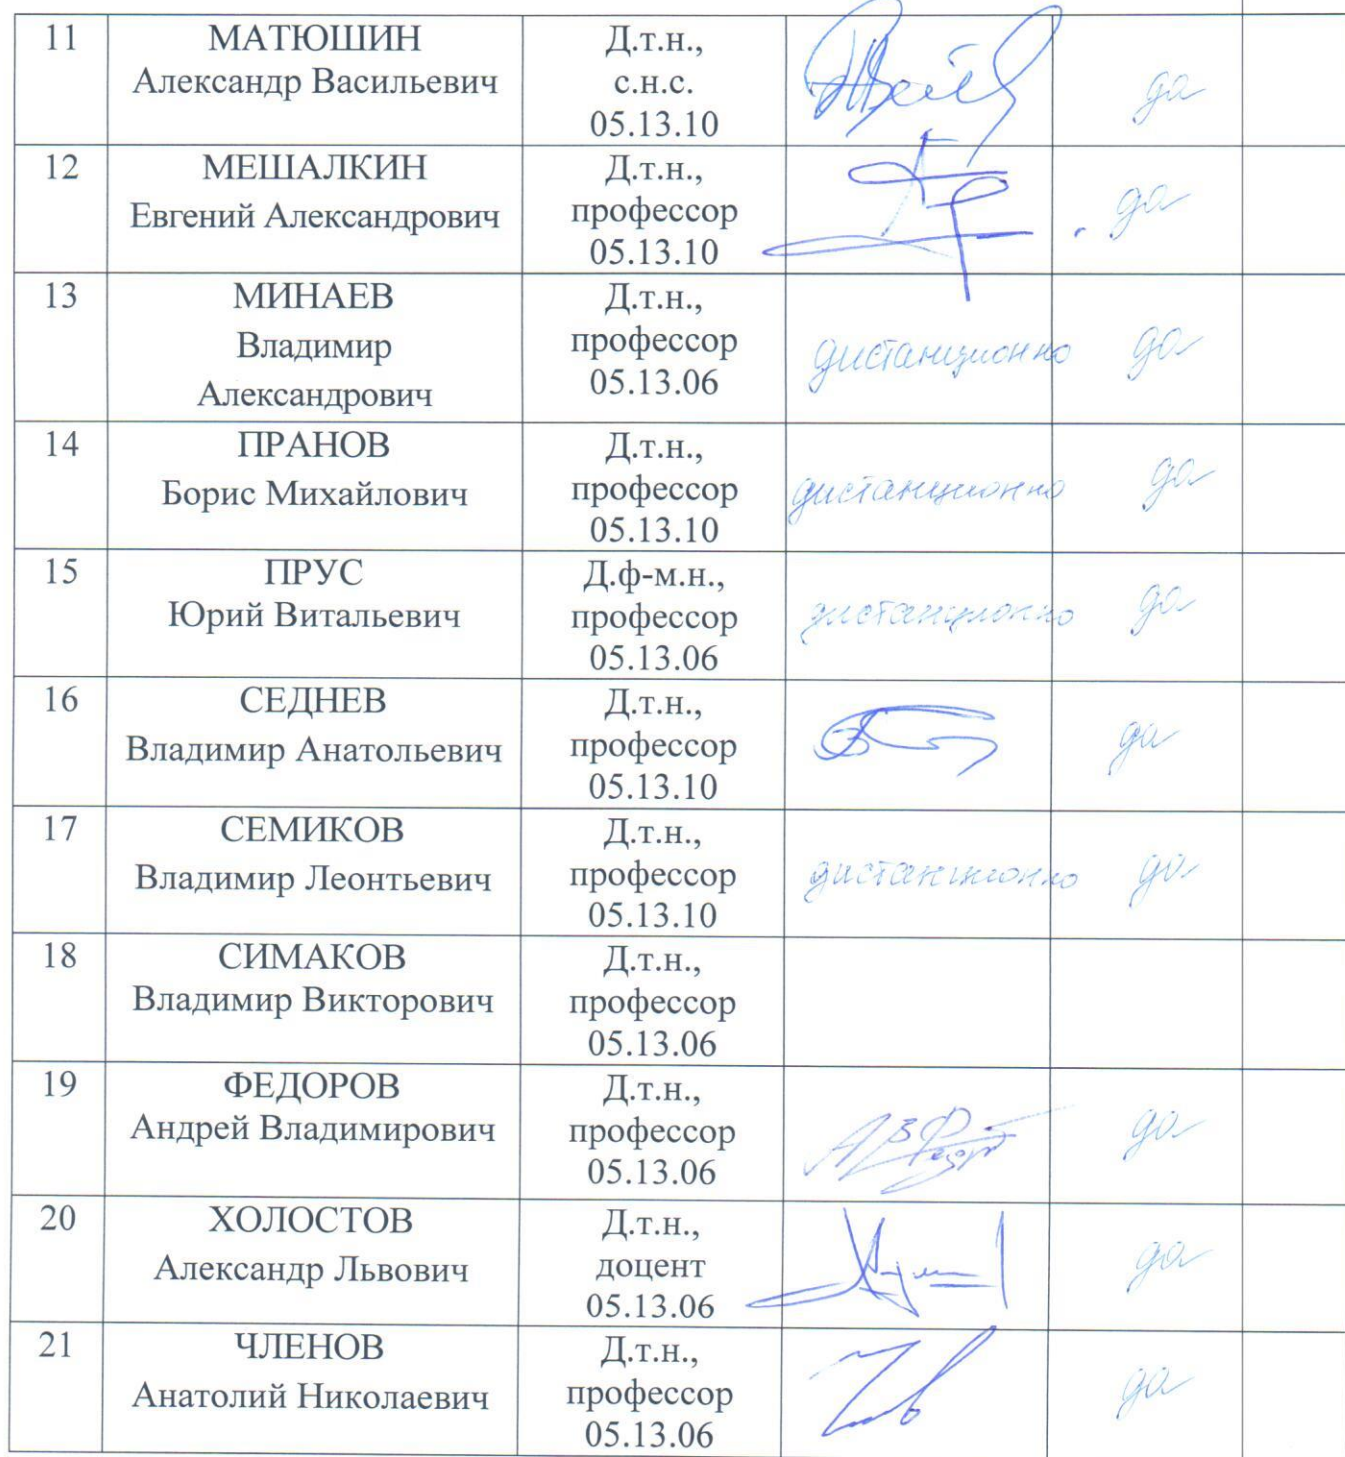 11
МАТЮШИН
Александр Васильевич
Д.т.н.,
с.н.с.
05.13.10
да
12
МЕШАЛКИН
Евгений Александрович
Д.т.н.,
профессор
05.13.10
да
13
МИНАЕВ
Владимир
Александрович
Д.т.н.,
профессор
05.13.06
дистанционно
да
14
ПРАНОВ
Борис Михайлович
Д.т.н.,
профессор
05.13.10
дистанционно
да
15
ПРУС
Юрий Витальевич
Д.ф-м.н.,
профессор
05.13.06
дистанционно
да
16
СЕДНЕВ
Владимир Анатольевич
Д.т.н.,
профессор
05.13.10
да
17
СЕМИКОВ
Владимир Леонтьевич
Д.т.н.,
профессор
05.13.10
дистанционно
да
18
СИМАКОВ
Владимир Викторович
Д.т.н.,
профессор
05.13.06
19
ФЕДОРОВ
Андрей Владимирович
Д.т.н.,
профессор
05.13.06
да
20
ХОЛОСТОВ
Александр Львович
Д.т.н.,
доцент
05.13.06
да
21
ЧЛЕНОВ
Анатолий Николаевич
Д.т.н.,
профессор
05.13.06
да